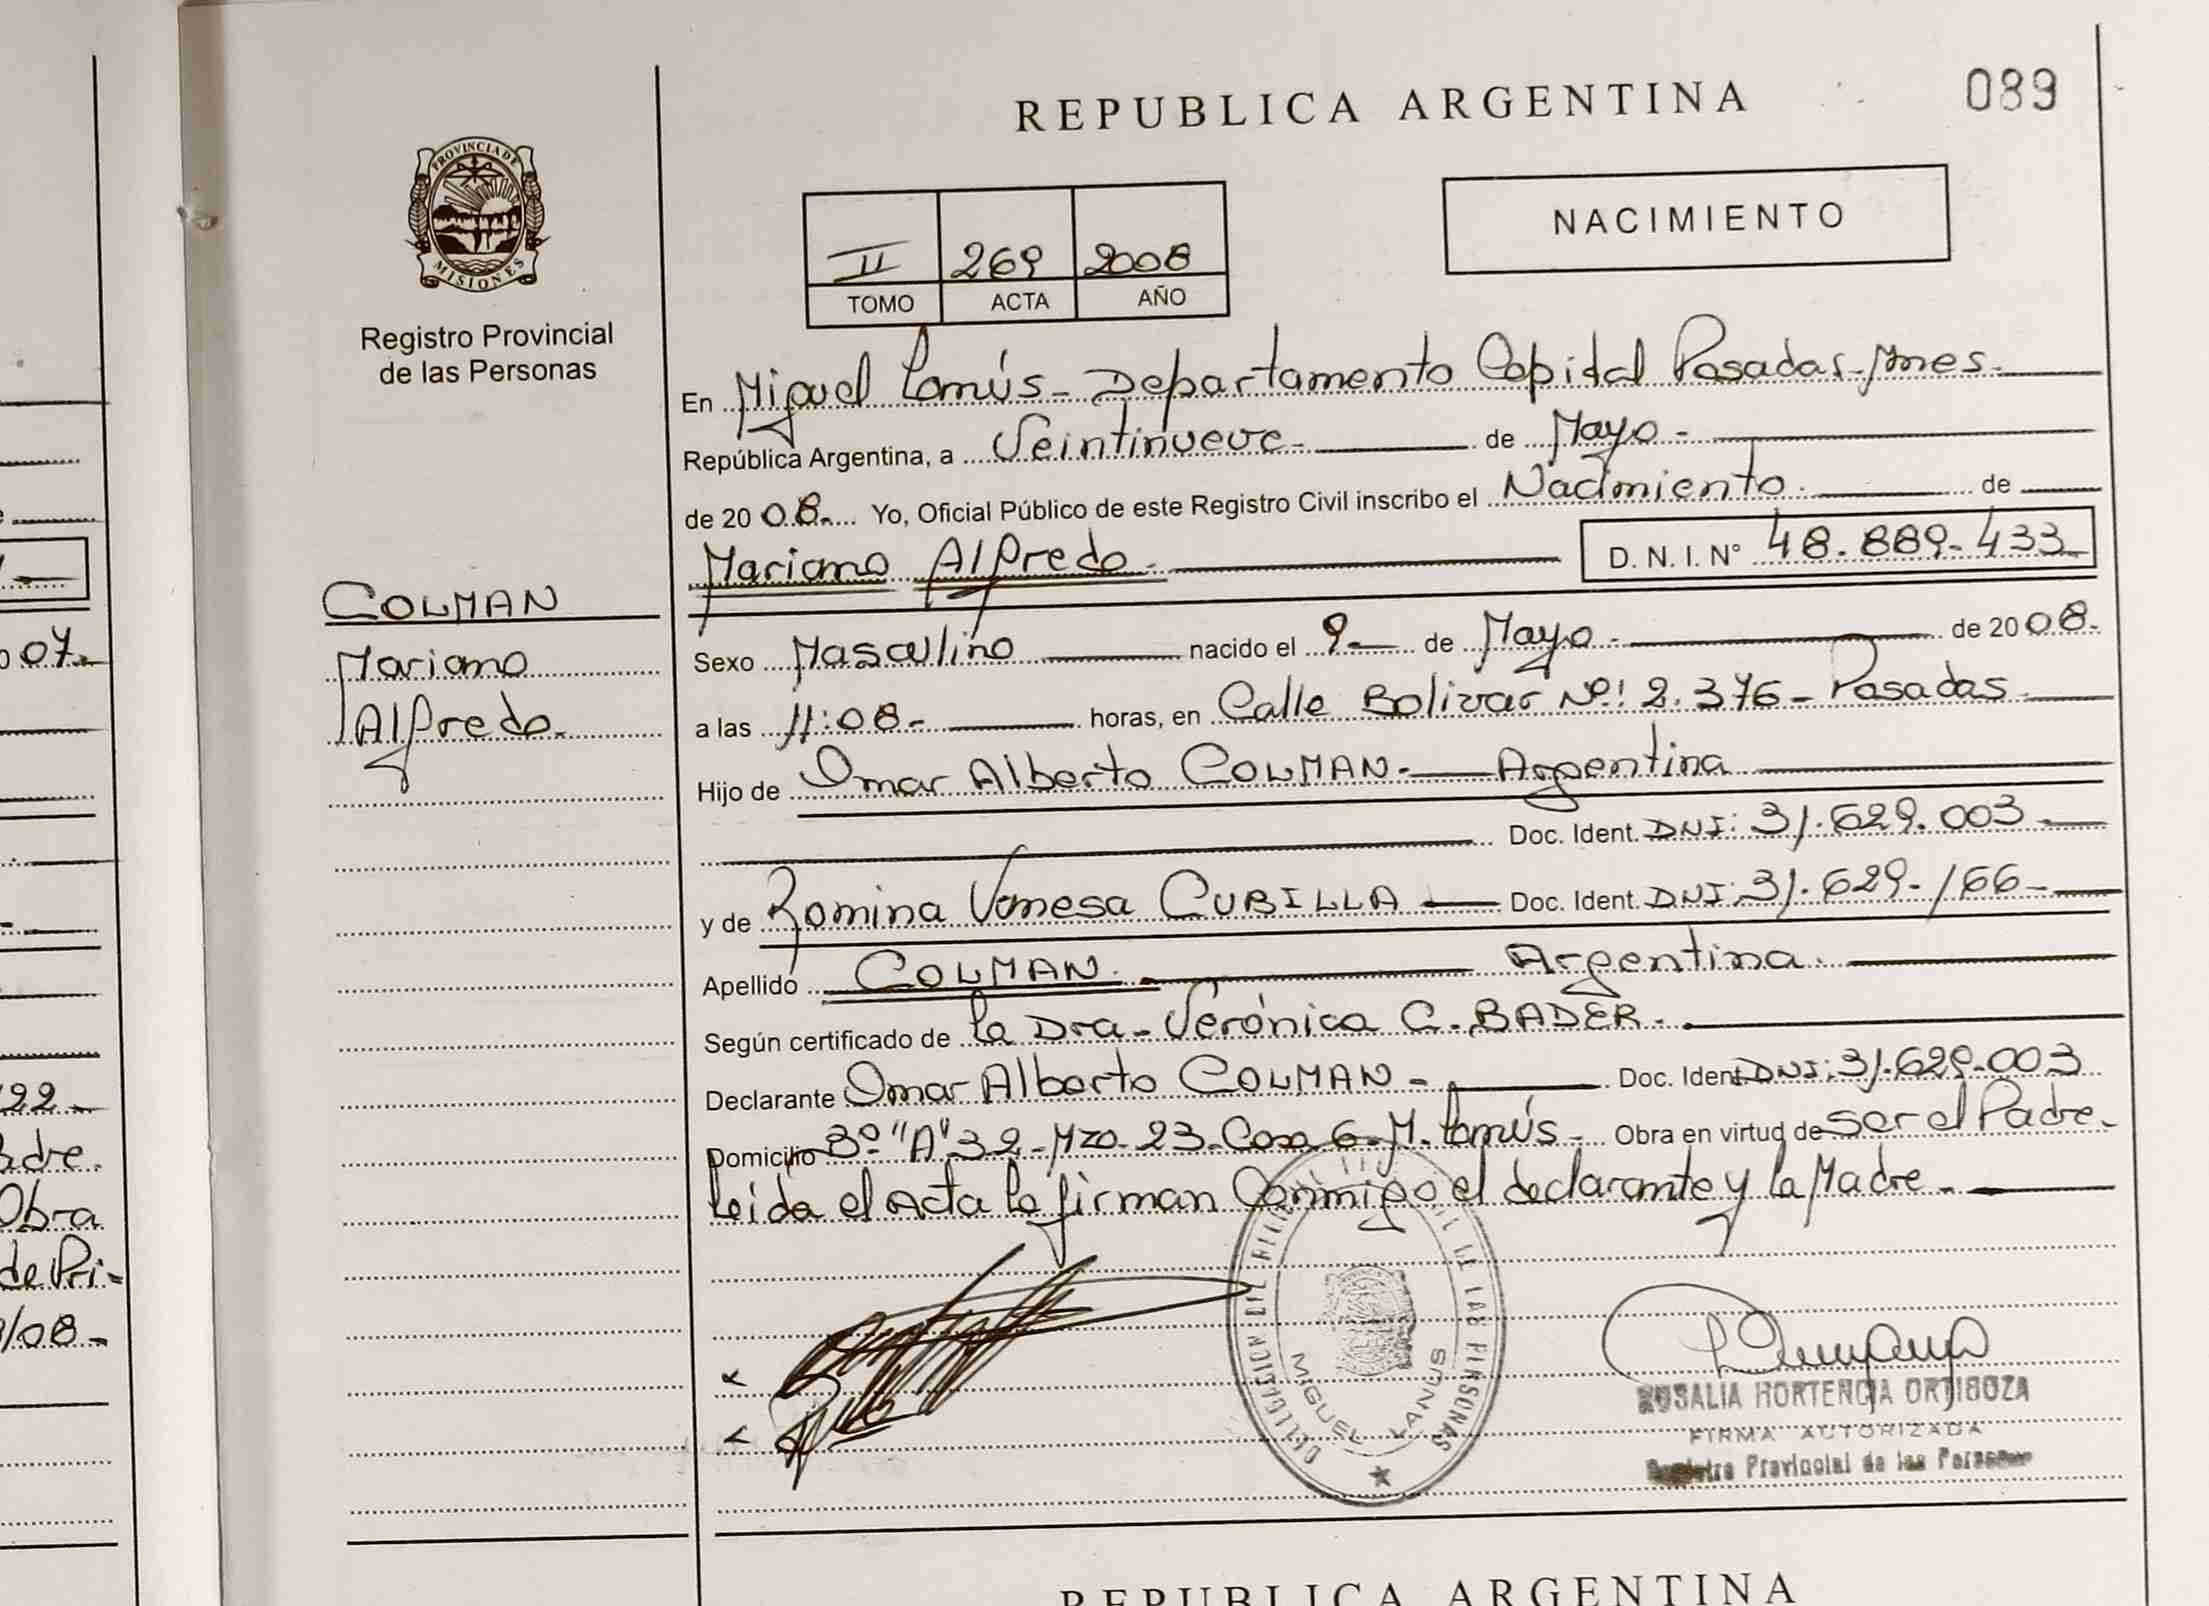 REPUBLICA ARGENTINA
089
PROVINCIA DE
MISIONES
Registro Provincial
de las Personas
II 269 2008
TOMO ACTA AÑO
NACIMIENTO
En Miguel Lanús - Departamento Capital Posadas - Mnes.
República Argentina, a Veintinueve - de Mayo -
de 2008. Yo, Oficial Público de este Registro Civil inscribo el Nacimiento. de
Mariano Alfredo. D. N. I. N° 48.889-433
COLMAN
Mariano
Alfredo.
Sexo Masculino nacido el 9 - de Mayo - de 2008.
a las 11:08 - horas, en Calle Bolivar Nº: 2.376 - Posadas
Hijo de Omar Alberto COLMAN - Argentina
Doc. Ident. DNI: 31.629.003
y de Romina Vanesa CUBILLA Doc. Ident. DNI: 31.629-166
Apellido COLMAN. Argentina.
Según certificado de la Dra. Verónica C. BADER.
Declarante Omar Alberto COLMAN - Doc. Ident. DNI: 31.629.003
Domicilio Bº "A" 32 - Mza. 23 - Casa 6 - M. Lanús - Obra en virtud de Ser el Padre -
Leida el Acta la firman Conmigo el declarante y la Madre -
DELEGACION DEL REGISTRO CIVIL DE LAS PERSONAS
MIGUEL LANUS
ROSALIA HORTENCIA ORTIGOZA
FIRMA AUTORIZADA
Registro Provincial de las Personas
REPUBLICA ARGENTINA
07.
22
adre.
Obra
de Pri-
/08 -